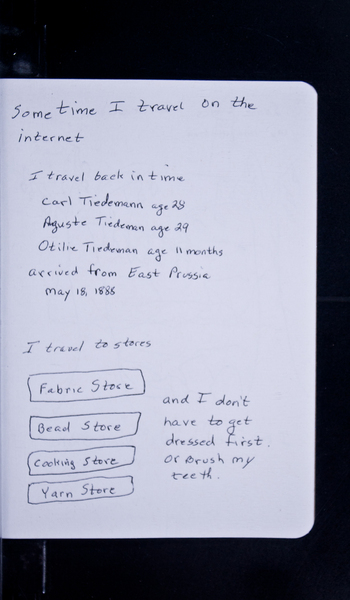 Sometime I travel on the
internet
I travel back in time
Carl Tiedemann age 28
Aguste Tiedeman age 29
Otilie Tiedeman age 11 months
arrived from East Prussia
May 18, 1888
I travel to stores
Fabric Store
Bead Store
Cooking Store
Yarn Store
and I don't
have to get
dressed first.
Or Brush my
teeth.